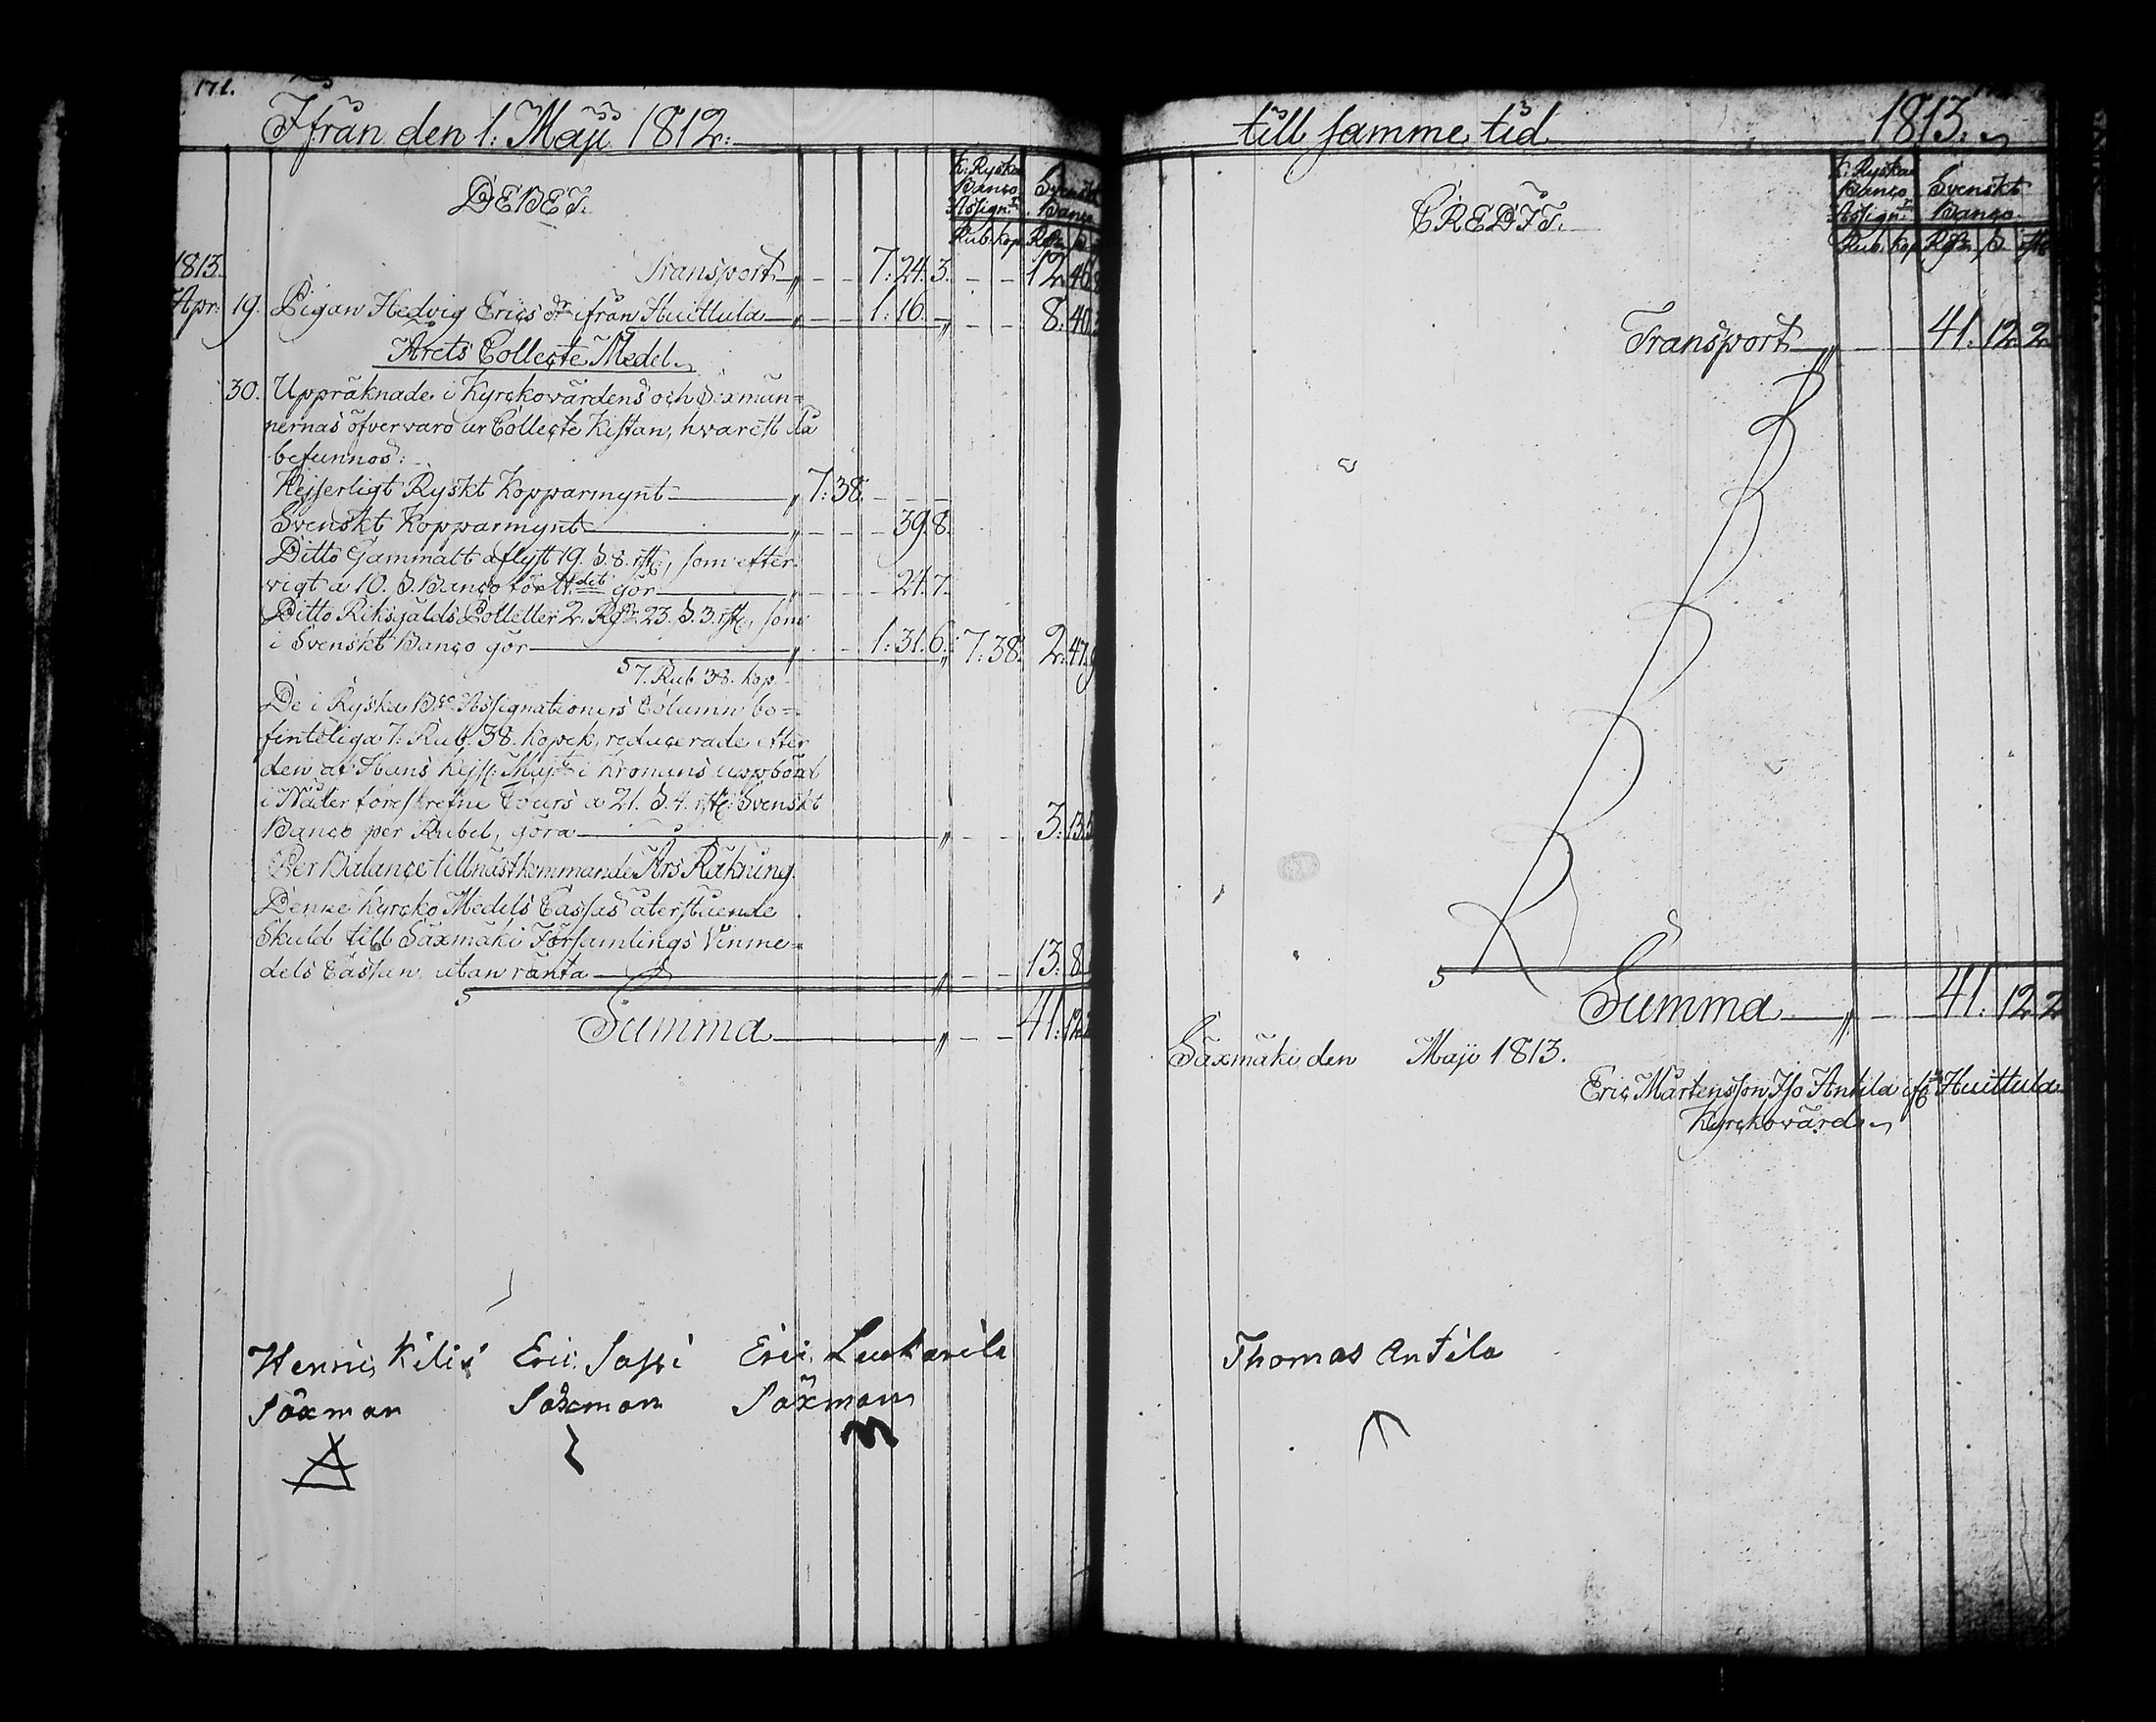 171.
Ifrån den 1. Maji 1812.
DEBET.
K: Ryska Banco Assign:r
Svenskt Banco
Rub. kop. Rdr ß
1813. Transport 7: 24. 3. 12. 46
Apr: 19. Pigan Hedvig Ericsdr ifrån Huittula 1: 16. 8. 40
Årets Collecte Medel.
30. Uppräknade i Kyrckovärdens och Sexmän=
nernas öfvervaro ur Collecte Kistan, hvarest då
befunnos:
Kejserligt Ryskt Kopparmynt 7: 38.
Svenskt Kopparmynt 39. 8.
Ditto Gammalt aflyst 19. ß. 8. rst:, som efter
vigt a 10. ß. Banco för ℔.det gör 24. 7.
Ditto Riksgälds Polletter 2. Rdr 23. ß. 3. rst:, som
i Svenskt Banco gör 1: 31. 6. 7: 38. 2: 47. 9
7. Rub. 38. kop.
De i Ryska B:co Assignationers Column be=
finteliga 7: Rub. 38. kopek, reducerade efter
den af Hans Kejs: Maj:t i Kronans uppbörd
i Nåder föreskrefne Cours a 21. ß. 4. rst: Svenskt
Banco per Rubel, göra 3: 13. 5
Per Balance till nästkommande Års Räkning.
Denne Kyrcko Medels Cassas återstående
Skuld till Säxmäki Församlings Vinme=
dels Cassan, utan ränta 13: 8
Summa 41: 12. 2
Henric Kilis Eric Sassi Eric
Säxman Säxman Säxman
till samme tid 1813.
CREDIT.
K: Ryska Banco Assign:r
Svenskt Banco.
Rub. kop. Rdr ß. rst:
Transport 41. 12. 2
Summa 41. 12. 2
Säxmäki den Maji 1813.
Eric Mårtensson Iso Antila ifr: Huittula
Kyrckovärd.
Thomas Antila